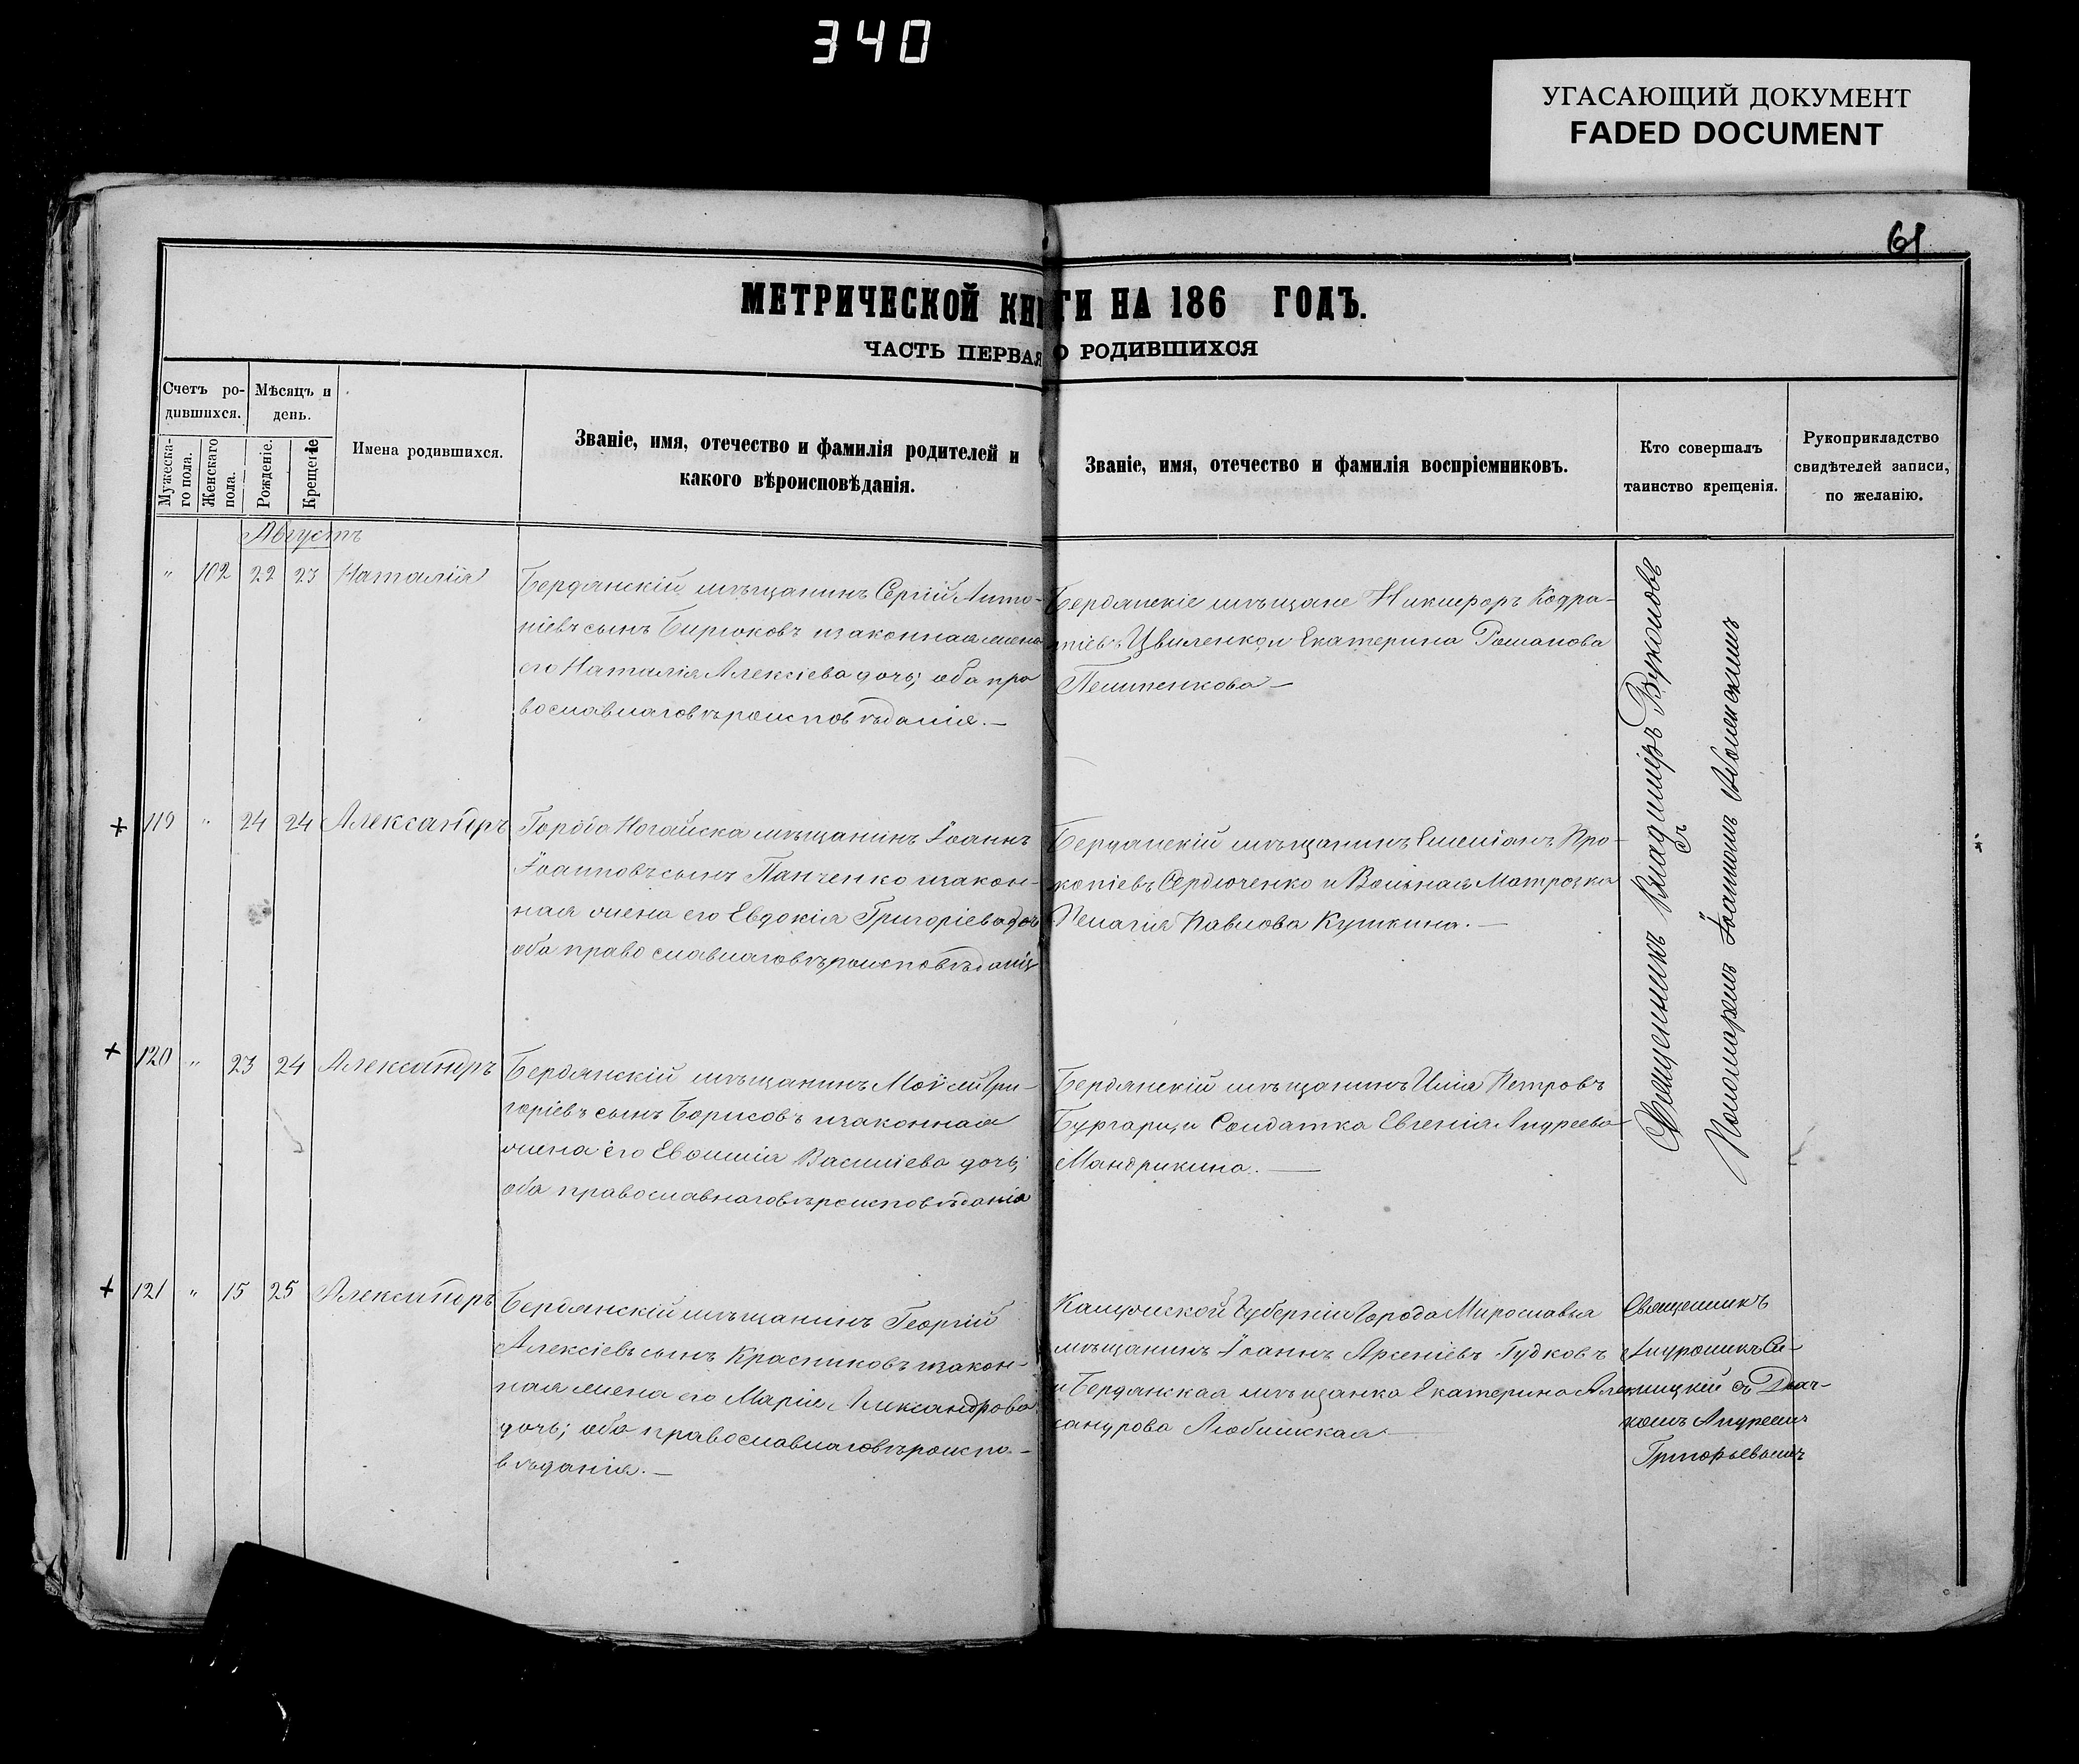 340
УГАСАЮЩИЙ ДОКУМЕНТ
FADED DOCUMENT
61
МЕТРИЧЕСКОЙ КНИГИ НА 186 ГОДЪ.
ЧАСТЬ ПЕРВАЯ О РОДИВШИХСЯ
Счетъ ро-
дившихся.
Мѣсяцъ и
день.
Мужеска-
го пола.
Женскаго
пола.
Рожденіе.
Крещеніе
Имена родившихся.
Званіе, имя, отечество и фамилія родителей и
какого вѣроисповѣданія.
Званіе, имя, отечество и фамилія воспріемниковъ.
Кто совершалъ
таинство крещенія.
Рукоприкладство
свидѣтелей записи,
по желанію.
Августъ
" 102 22 23 Наталія
Бердянскій мѣщанинъ Сергій Анто-
ніевъ сынъ Бирюковъ изаконная жена
его Наталія Алексіева дочь; оба пра
вославнаго вѣроисповѣданія. —
Бердянскіе мѣщане Никифоръ Кодра-
тіевъ Цвиленко, и Екатерина Романова
—
+ 119 " 24 24 Александръ
Города Ногайска мѣщанинъ Іоаннъ
Іоанновъ сынъ Панченко изакон-
ная жена его Евдокія Григоріева доч
оба православнаго вѣроисповѣданія
Бердянскій мѣщанинъ Емеліанъ Про-
копіевъ Сердюченко и Вольная Матрозка
Пелагія Павлова Кушкина. —
+ 120 " 23 24 Александръ
Бердянскій мѣщанинъ Моѵсей Гри-
горіевъ сынъ Борисовъ изаконная
жена его Евфимія Василіева дочь;
оба православнаго вѣроисповѣданія
Бердянскій мѣщанинъ Илія Петровъ
Бургаръ, и Солдатка Евгенія Андреева
Мандрикина. —
Священникъ Владиміръ Вуколовъ
съ
Пономаремъ Іоанномъ
+ 121 " 15 25 Александръ
Бердянскій мѣщанинъ Георгій
Алексіевъ сынъ Красниковъ изакон-
ная жена его Марія Александрова
дочь; оба православнаго вѣроиспо-
вѣданія. —
Калужской Губерніи Города Мирославля
мѣщанинъ Іоаннъ Арсеніевъ Гудковъ
и Бердянская мѣщанка Екатерина Алек
сандрова Любимская —
Священникъ
Андроникъ Си-
ницкій съ Дьяч-
комъ Андреемъ
Григорьевымъ